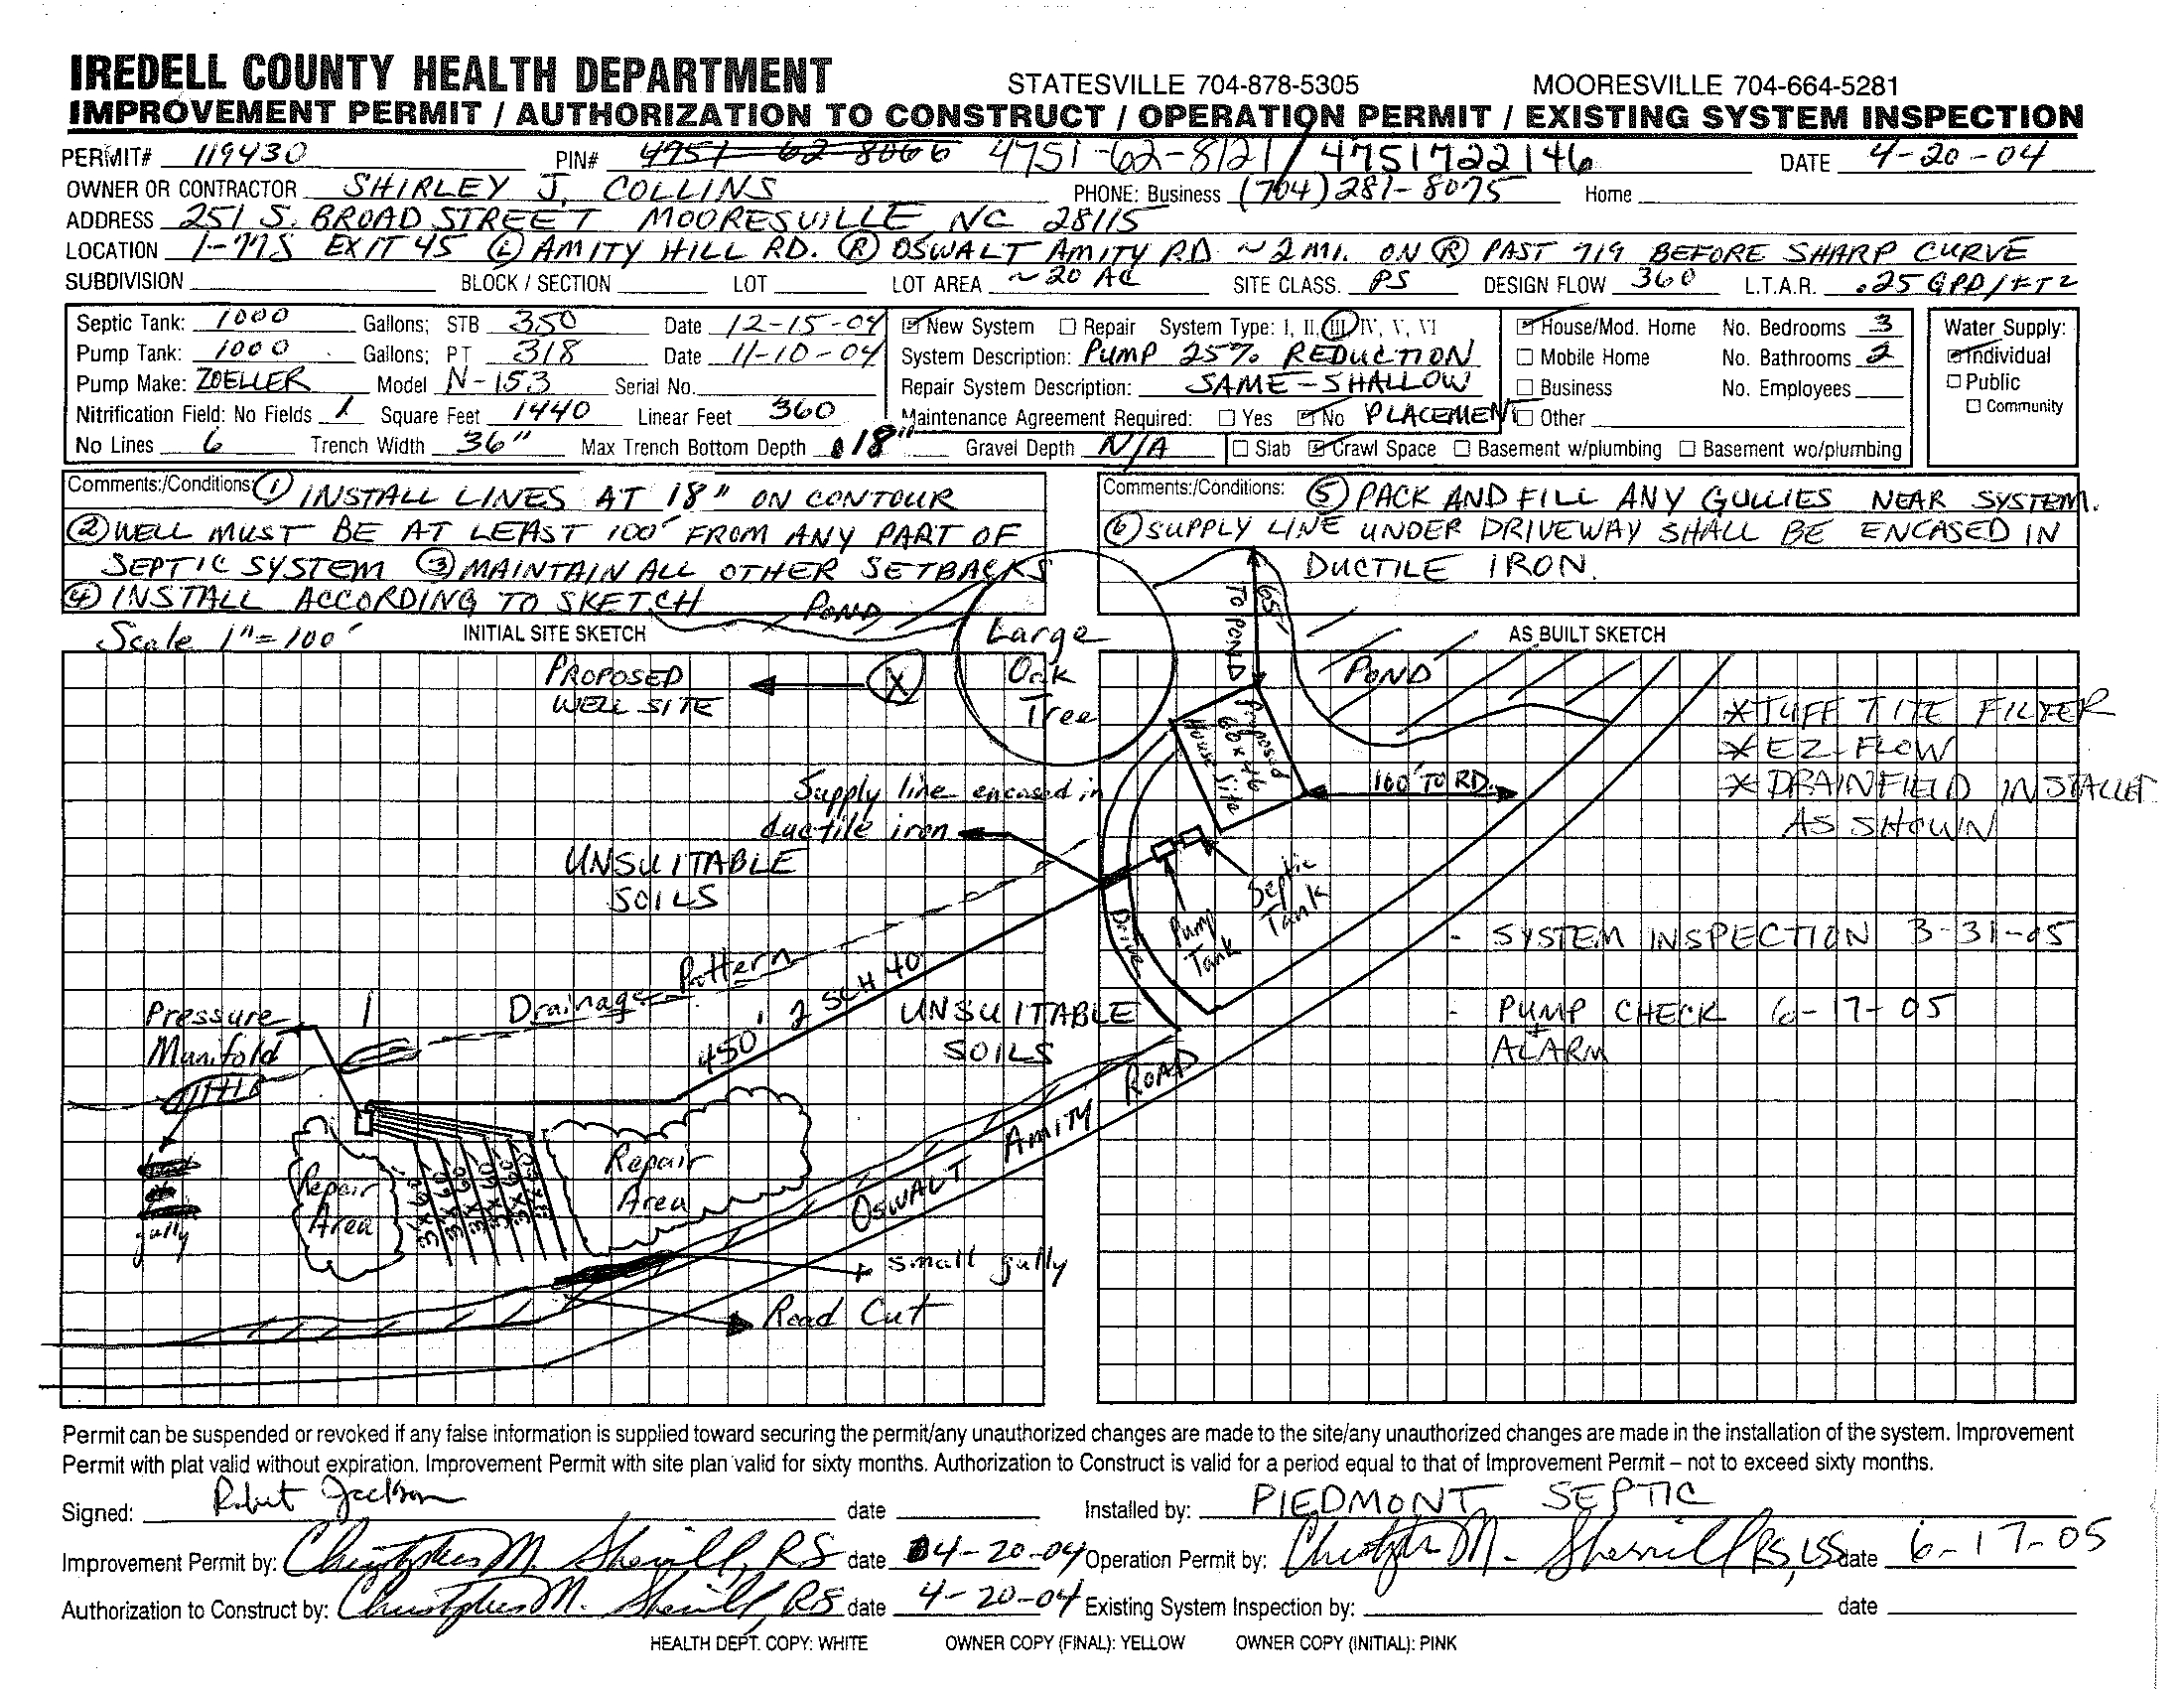 IREDELL COUNTY HEALTH DEPARTMENT STATESVILLE 704-878-5305 MOORESVILLE 704-664-5281
IMPROVEMENT PERMIT / AUTHORIZATION TO CONSTRUCT / OPERATION PERMIT / EXISTING SYSTEM INSPECTION
PERMIT# 119430 PIN# 4751-62-8066 4751-62-8121 / 4751722146 DATE 4-20-04
OWNER OR CONTRACTOR SHIRLEY J. COLLINS PHONE: Business (704) 281-8075 Home
ADDRESS 251 S. BROAD STREET MOORESVILLE NC 28115
LOCATION I-77S EXIT 45 (L) AMITY HILL RD. (R) OSWALT AMITY RD ~2 MI. ON (R) PAST 719 BEFORE SHARP CURVE
SUBDIVISION BLOCK / SECTION LOT LOT AREA ~20 AC SITE CLASS. PS DESIGN FLOW 360 L.T.A.R. .25 GPD/FT2
Septic Tank: 1000 Gallons; STB 350 Date 12-15-04 New System Repair System Type: I, II, III, IV, V, VI House/Mod. Home No. Bedrooms 3 Water Supply:
Pump Tank: 1000 Gallons; PT 318 Date 11-10-04 System Description: PUMP 25% REDUCTION Mobile Home No. Bathrooms 2 Individual
Pump Make: ZOELLER Model N-153 Serial No. Repair System Description: SAME - SHALLOW Business No. Employees Public
Nitrification Field: No Fields 1 Square Feet 1440 Linear Feet 360 Maintenance Agreement Required: Yes No PLACEMENT Other Community
No Lines 6 Trench Width 36" Max Trench Bottom Depth 18" Gravel Depth N/A Slab Crawl Space Basement w/plumbing Basement wo/plumbing
Comments:/Conditions: (1) INSTALL LINES AT 18" ON CONTOUR
(2) WELL MUST BE AT LEAST 100' FROM ANY PART OF
SEPTIC SYSTEM (3) MAINTAIN ALL OTHER SETBACKS
(4) INSTALL ACCORDING TO SKETCH
Comments:/Conditions: (5) PACK AND FILL ANY GULLIES NEAR SYSTEM.
(6) SUPPLY LINE UNDER DRIVEWAY SHALL BE ENCASED IN
DUCTILE IRON.
Scale 1"=100' INITIAL SITE SKETCH POND
AS BUILT SKETCH
PROPOSED
WELL SITE
X
Large
Oak
Tree
65'
TO POND
POND
Proposed
60 x 46
House Site
100' TO RD.
*TUFF TITE FILTER
*EZ FLOW
*DRAINFIELD INSTALLED
AS SHOWN
Supply line encased in
ductile iron
UNSUITABLE
SOILS
Septic
Tank
Pump
Tank
Drive
- SYSTEM INSPECTION 3-31-05
- PUMP CHECK 6-17-05
+
ALARM
Drainage Pattern
450' 2 SCH 40
UNSUITABLE
SOILS
Pressure
Manifold
gully
Repair
Area
3'x60'
3'x60'
3'x60'
3'x60'
3'x60'
3'x60'
Repair
Area
OSWALT AMITY ROAD
small gully
Road Cut
Permit can be suspended or revoked if any false information is supplied toward securing the permit/any unauthorized changes are made to the site/any unauthorized changes are made in the installation of the system. Improvement
Permit with plat valid without expiration. Improvement Permit with site plan valid for sixty months. Authorization to Construct is valid for a period equal to that of Improvement Permit – not to exceed sixty months.
Signed: Robert Jackson date Installed by: PIEDMONT SEPTIC
Improvement Permit by: Christopher M. Sherrill, RS date 4-20-04 Operation Permit by: Christopher M. Sherrill RS, LSS date 6-17-05
Authorization to Construct by: Christopher M. Sherrill, RS date 4-20-04 Existing System Inspection by: date
HEALTH DEPT. COPY: WHITE OWNER COPY (FINAL): YELLOW OWNER COPY (INITIAL): PINK